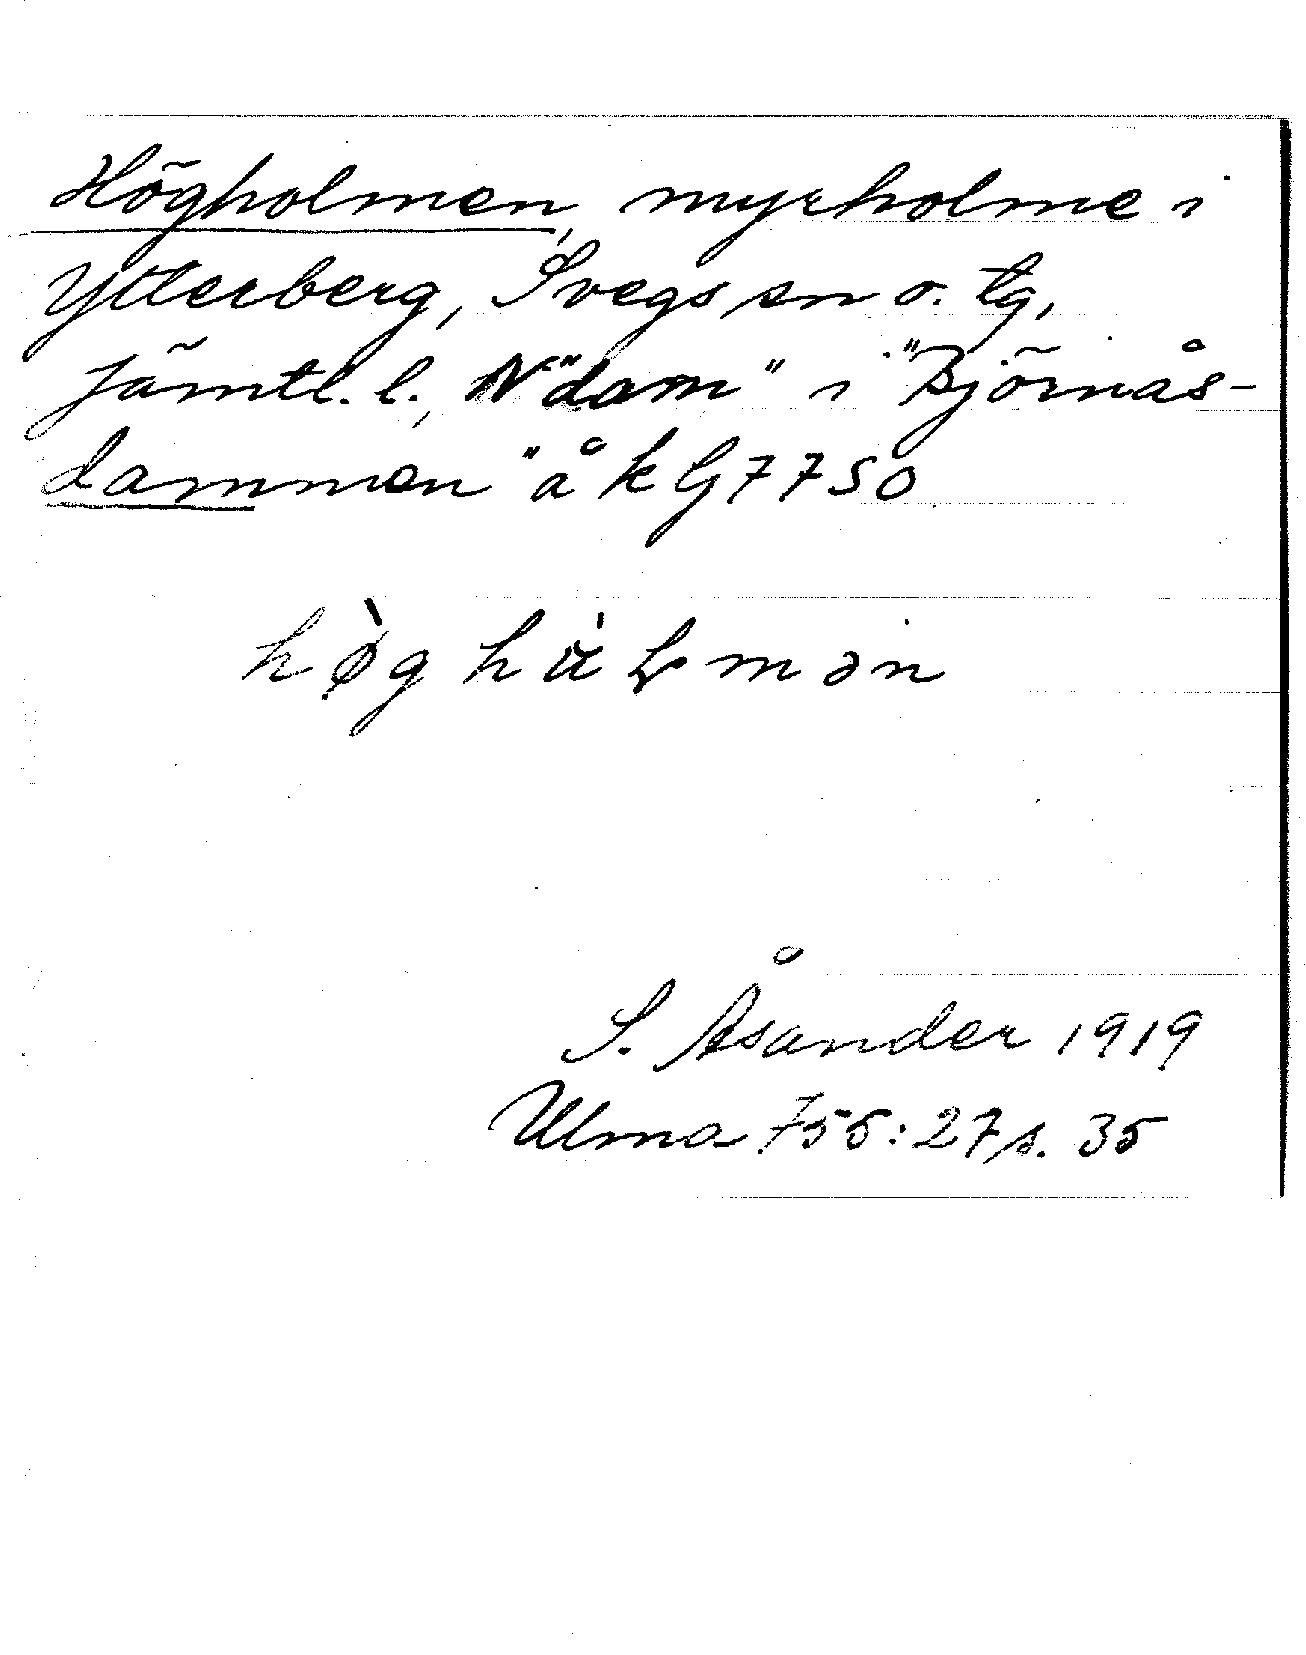 Högholmen, myrholme i
Ytterberg, Svegs sn o. tg,
Jämtl. l., N "dam" i "Björnås-
dammen" å kG7750
hø̀g hὰɫmən
S. Åsander 1919
Ulma 755:27 s. 35